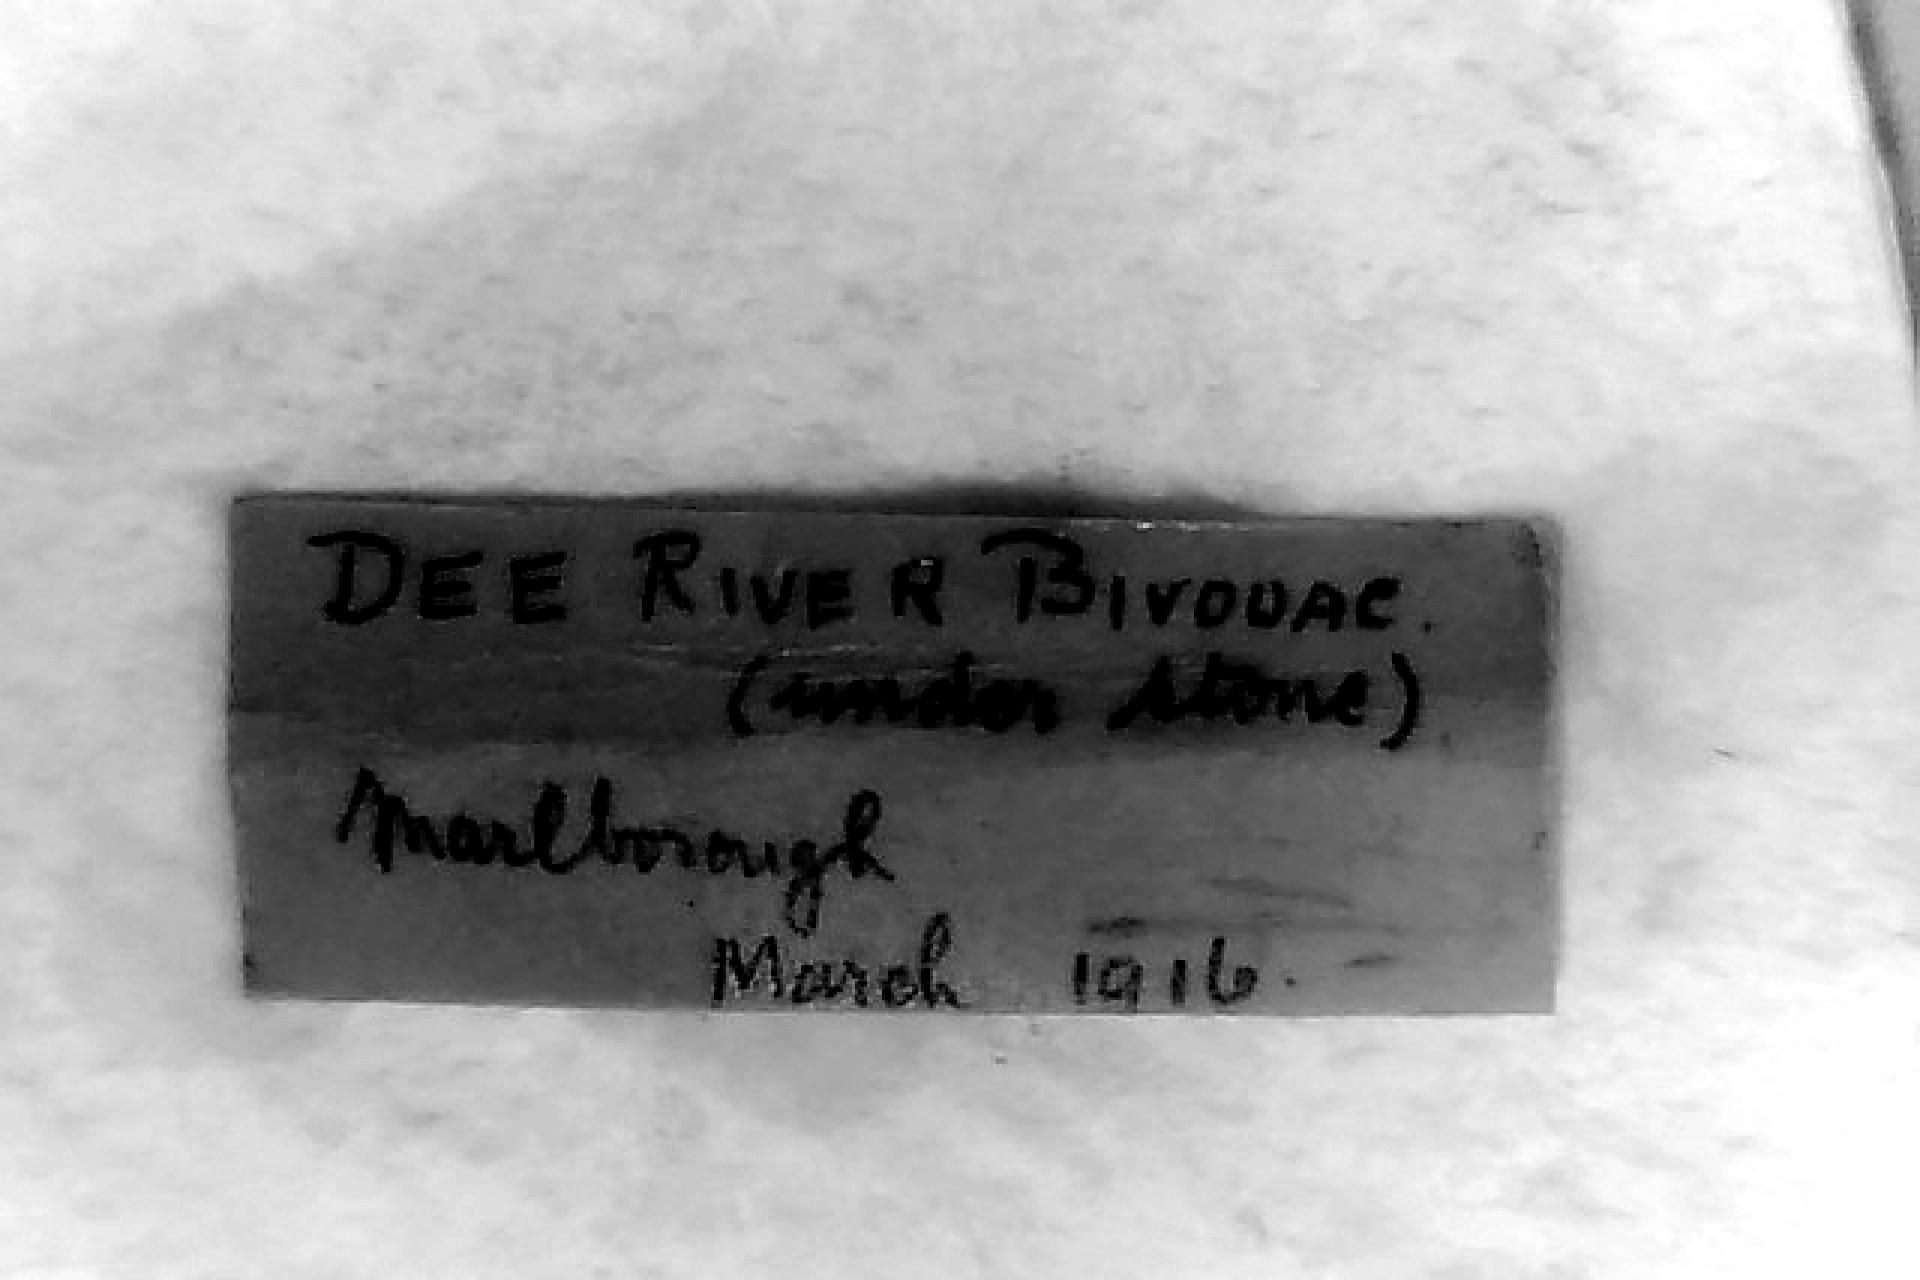 DEE RIVER BIVOUAC.
(under stone)
Marlborough
March 1916.